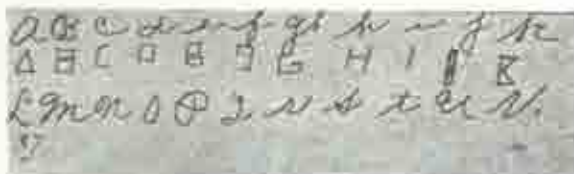 a B c d e f g h i j k
A B C D E F G H I J K
L m n o P q r s t u v.